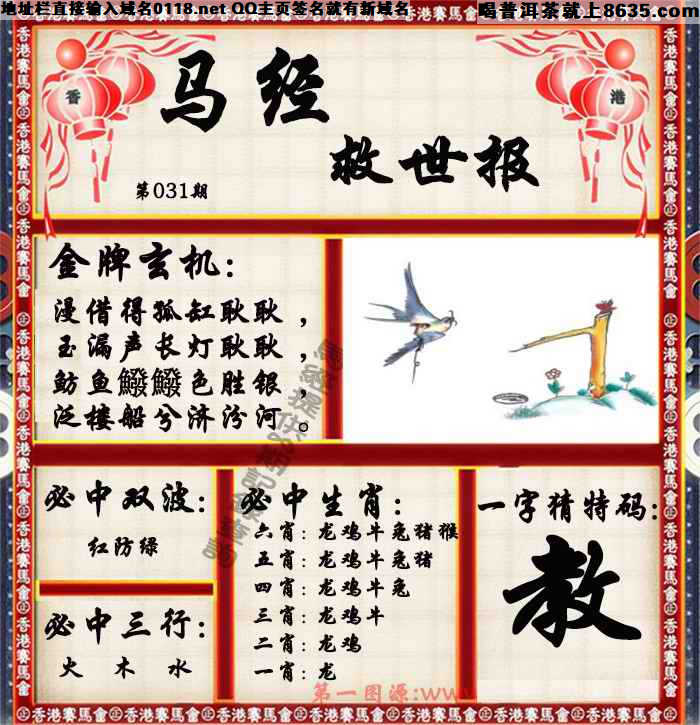 地址栏直接输入域名0118.net QQ主页签名就有新域名
喝普洱茶就上8635.com
香 港
马经
救世报
第031期
金牌玄机:
漫借得孤缸耿耿，
玉漏声长灯耿耿，
鲂鱼鱍鱍色胜银，
泛楼船兮济汾河。
必中双波:
红防绿
必中三行:
火 木 水
必中生肖:
六肖:龙鸡牛兔猪猴
五肖:龙鸡牛兔猪
四肖:龙鸡牛兔
三肖:龙鸡牛
二肖:龙鸡
一肖:龙
一字猜特码:
教
第一图源:www
香港賽馬會